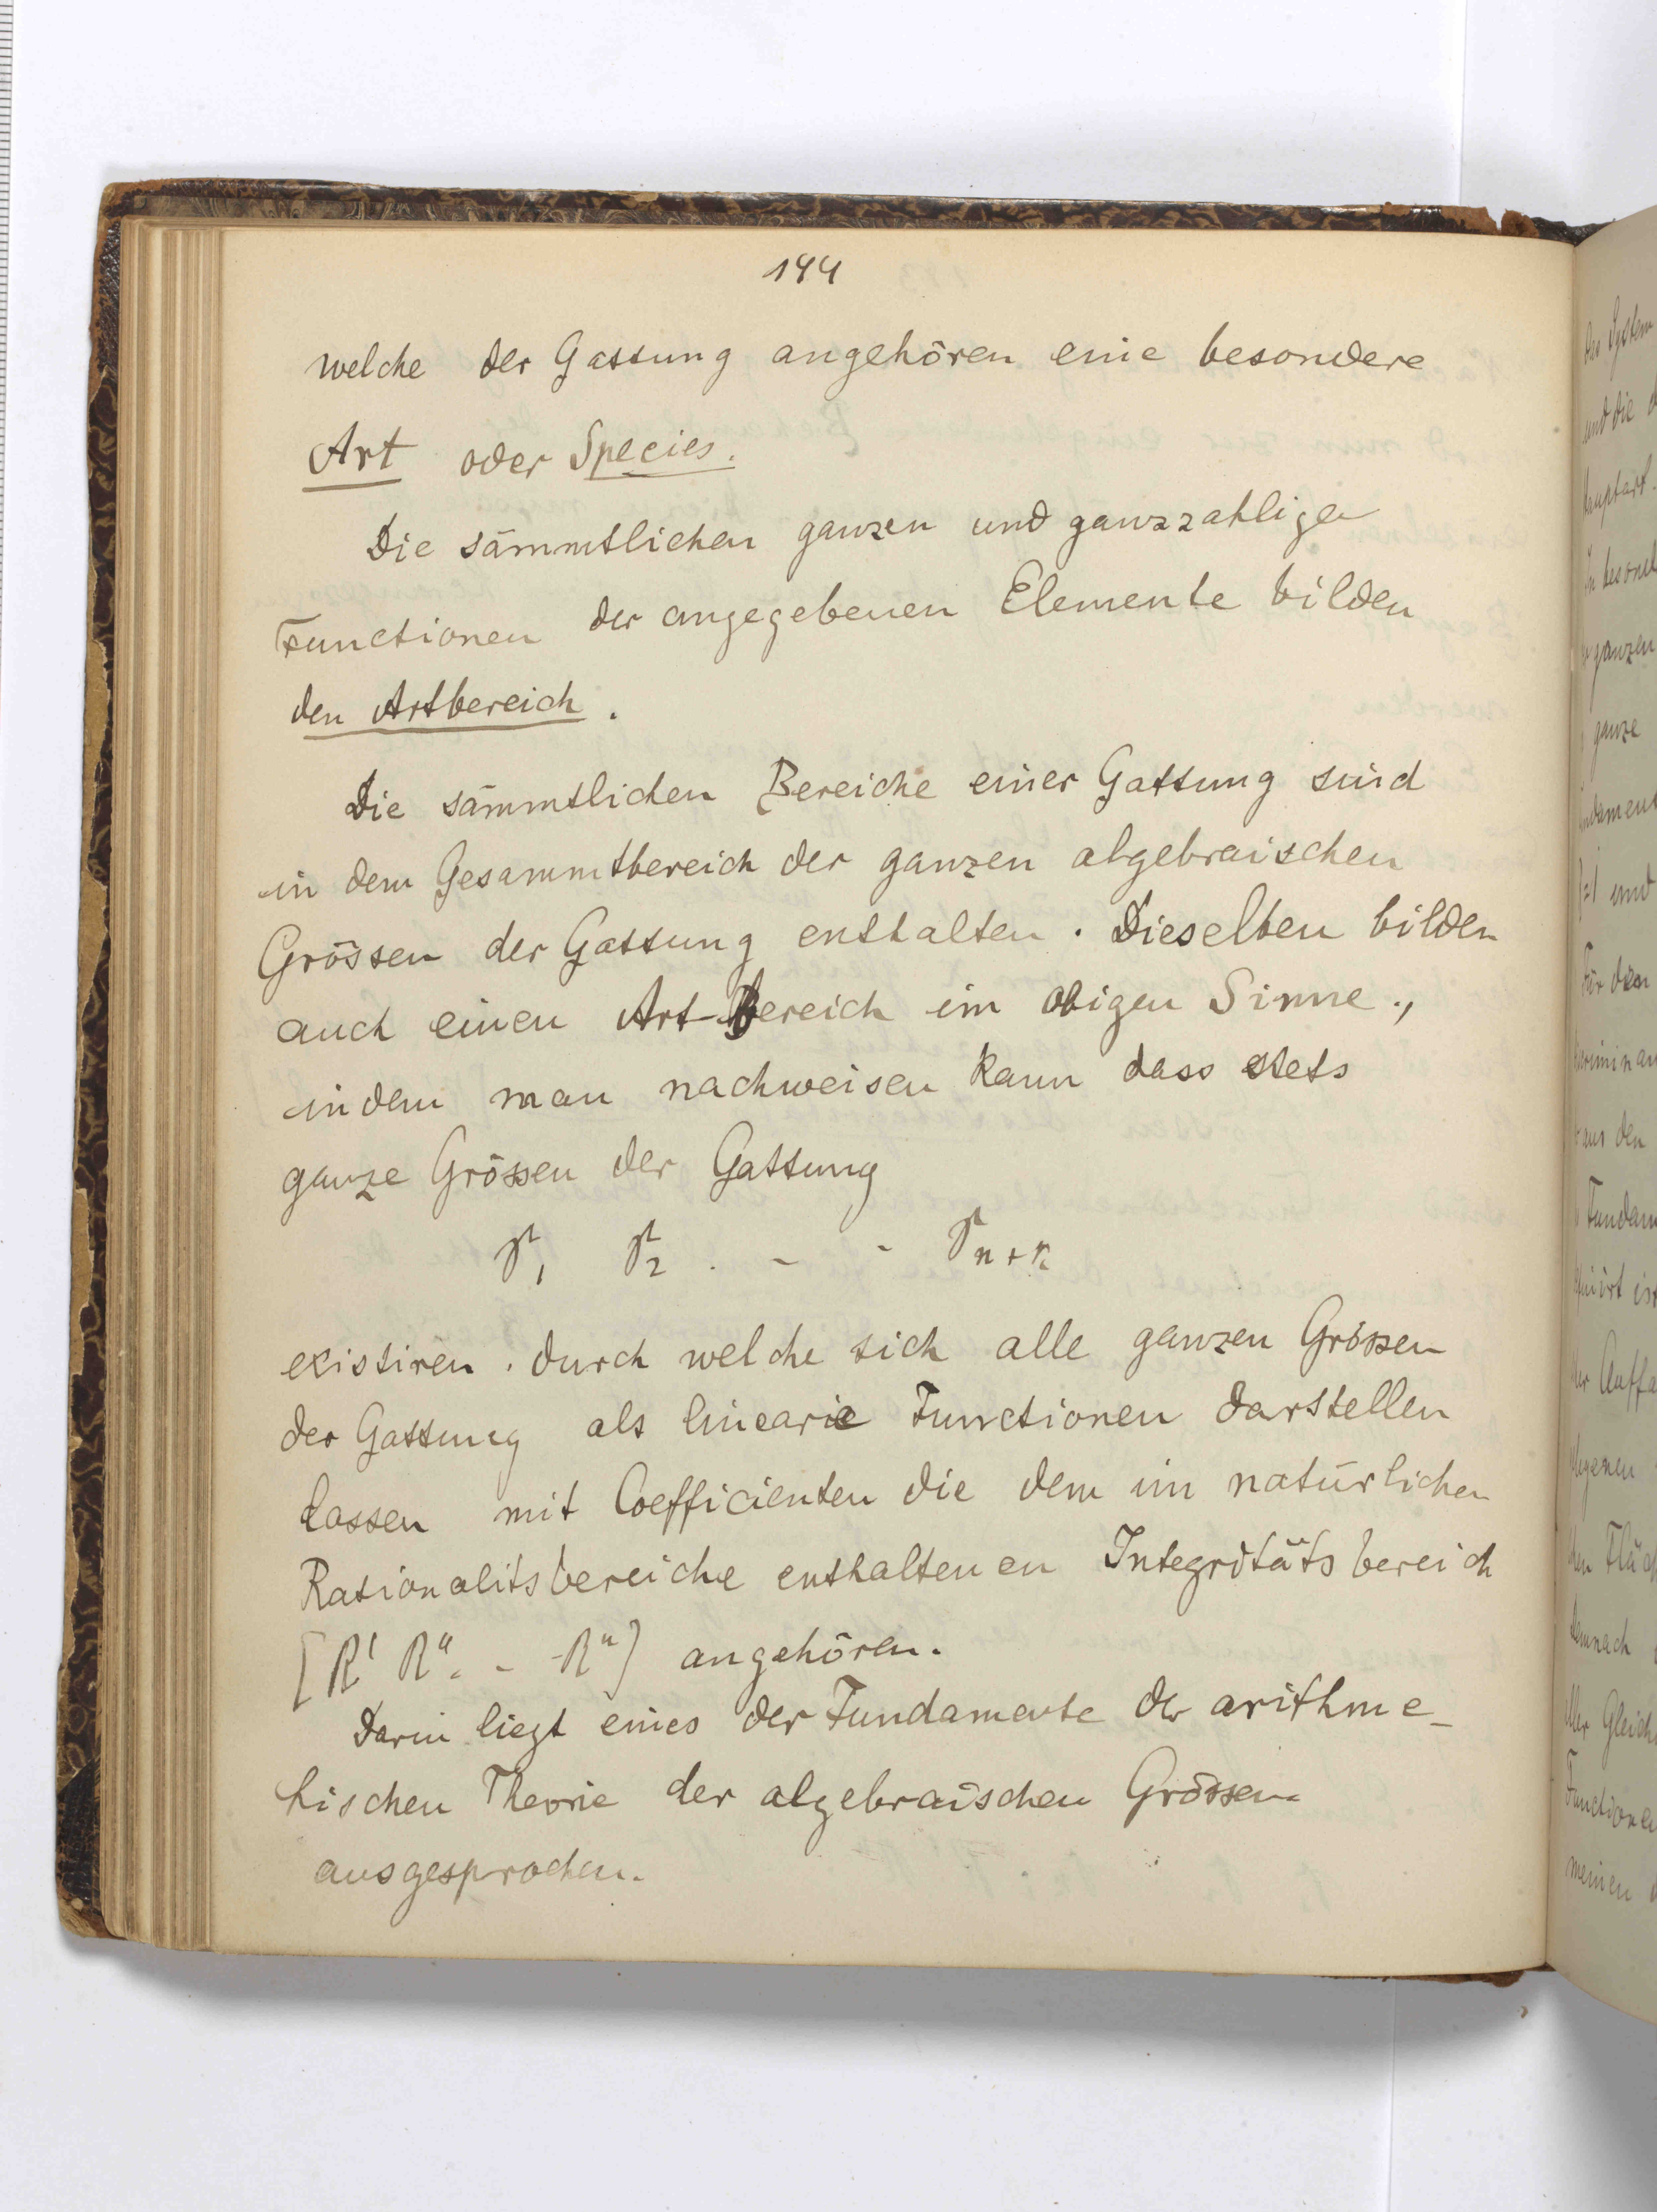 144
welche der Gattung angehören eine besondere
Art oder Species.
Die sämmtlichen ganzen und ganzzahligen
Functionen der angegebenen Elemente bilden
den Artbereich.
Die sämmtlichen Bereiche einer Gattung sind
in dem Gesammtbereich der ganzen algebraischen
Grössen der Gattung enthalten. Dieselben bilden
auch einen Art-Bereich im obigen Sinne.,
indem man nachweisen kann dass stets
ganze Grössen der Gattung
existiren. durch welche sich alle ganzen Grössen
der Gattung als lineare Functionen darstellen
lassen mit Coefficienten die dem im natürlichen
Rationalitsbereiche enthaltenen Integritätsbereich
[R' R'' . - - Rⁿ] angehören.
Darin liegt eines der Fundamente der arithme-
tischen Theorie der algebraischen Grössen
ausgesprochen.
das System
und die
Hauptart.
ganzen
ganze
und
Für den
aus den
ist